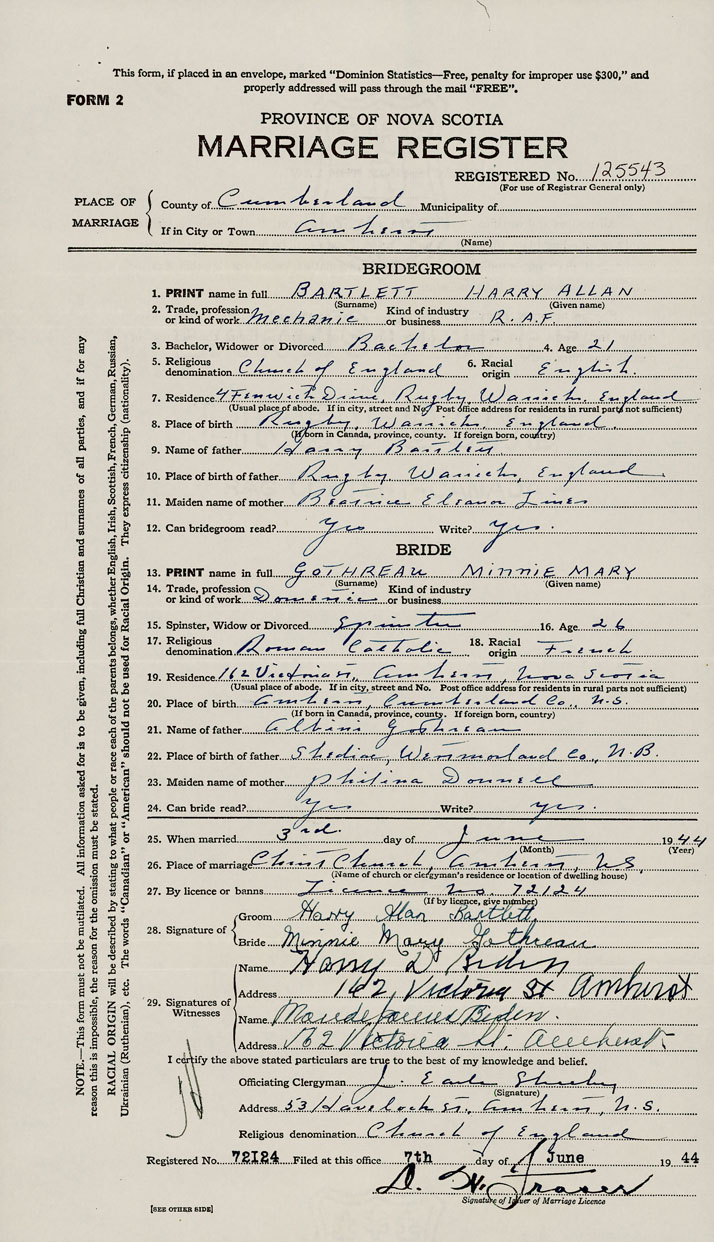 This form, if placed in an envelope, marked "Dominion Statistics—Free, penalty for improper use $300," and
properly addressed will pass through the mail "FREE".
FORM 2
PROVINCE OF NOVA SCOTIA
MARRIAGE REGISTER
REGISTERED No. 125543
(For use of Registrar General only)
PLACE OF MARRIAGE
County of Cumberland Municipality of
If in City or Town Amherst
(Name)
BRIDEGROOM
1. PRINT name in full BARTLETT HARRY ALLAN
(Surname) (Given name)
2. Trade, profession or kind of work Mechanic Kind of industry or business R.A.F.
3. Bachelor, Widower or Divorced Bachelor 4. Age 21
5. Religious denomination Church of England 6. Racial origin English.
7. Residence 4 Fenwick Drive, Rugby, Warwicks. England
(Usual place of abode. If in city, street and No. Post office address for residents in rural parts not sufficient)
8. Place of birth Rugby, Warwicks. England
(If born in Canada, province, county. If foreign born, country)
9. Name of father Harry Bartlett
10. Place of birth of father Rugby Warwicks, England
11. Maiden name of mother Beatrice Eleanor Lines
12. Can bridegroom read? Yes Write? Yes.
BRIDE
13. PRINT name in full GOTHREAU MINNIE MARY
(Surname) (Given name)
14. Trade, profession or kind of work Domestic Kind of industry or business
15. Spinster, Widow or Divorced Spinster 16. Age 26
17. Religious denomination Roman Catholic 18. Racial origin French
19. Residence 162 Victoria St., Amherst, Nova Scotia
(Usual place of abode. If in city, street and No. Post office address for residents in rural parts not sufficient)
20. Place of birth Amherst, Cumberland Co., N.S.
(If born in Canada, province, county. If foreign born, country)
21. Name of father Gothreau
22. Place of birth of father Shediac, Westmorland Co., N.B.
23. Maiden name of mother Philina Donnell
24. Can bride read? Yes Write? Yes.
25. When married 3rd day of June 1944
(Month) (Year)
26. Place of marriage Christ Church, Amherst, N.S.
(Name of church or clergyman's residence or location of dwelling house)
27. By licence or banns Licence No. 72124
(If by licence, give number)
28. Signature of
Groom Harry Alan Bartlett
Bride Minnie Mary Gothreau
29. Signatures of Witnesses
Name Harry D Biden
Address 162, Victoria St Amherst
Name Biden.
Address 162 Victoria St. Amherst.
I certify the above stated particulars are true to the best of my knowledge and belief.
Officiating Clergyman J. Earle
(Signature)
Address 53 Havelock St., Amherst, N.S.
Religious denomination Church of England
Registered No. 72124 Filed at this office 7th day of June 1944
D. W. Fraser
Signature of Issuer of Marriage Licence
[SEE OTHER SIDE]
NOTE.—This form must not be mutilated. All information asked for is to be given, including full Christian and surnames of all parties, and if for any
reason this is impossible, the reason for the omission must be stated.
RACIAL ORIGIN will be described by stating to what people or race each of the parents belongs, whether English, Irish, Scottish, French, German, Russian,
Ukrainian (Ruthenian), etc. The words "Canadian" or "American" should not be used for Racial Origin. They express citizenship (nationality).